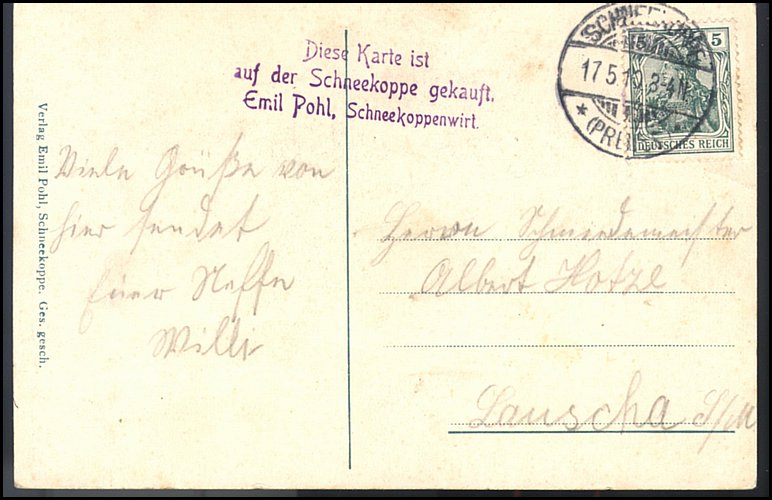 Diese Karte ist
auf der Schneekoppe gekauft.
Emil Pohl, Schneekoppenwirt.
SCHNEEKOPPE
17.5.10. 3-4N.
* (PREU
5
DEUTSCHES REICH
Verlag Emil Pohl, Schneekoppe. Ges. gesch.
Viele Grüße von
hier sendet
Euer Neffe
Willi
Herrn Schmiedemeister
Albert Hotze
Lauscha S/M